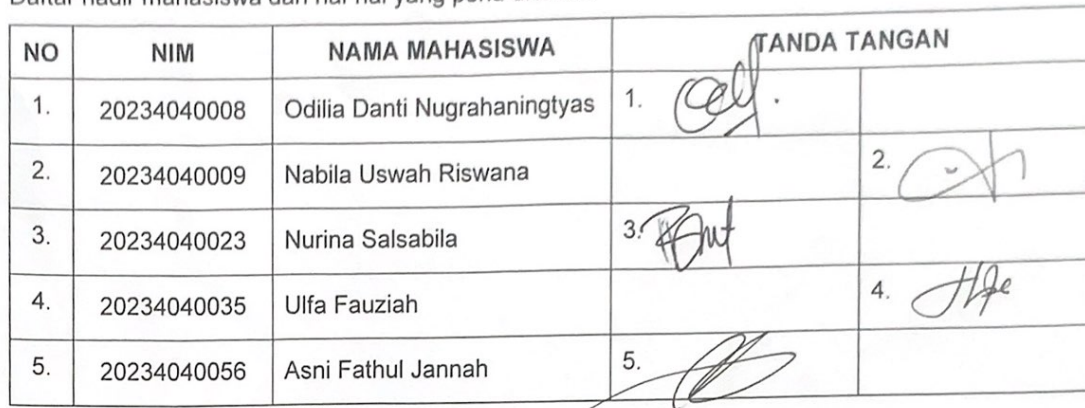 Daftar hadir mahasiswa dan hal-hal yang perlu
NO NIM NAMA MAHASISWA TANDA TANGAN
1. 20234040008 Odilia Danti Nugrahaningtyas 1.
2. 20234040009 Nabila Uswah Riswana 2.
3. 20234040023 Nurina Salsabila 3.
4. 20234040035 Ulfa Fauziah 4.
5. 20234040056 Asni Fathul Jannah 5.